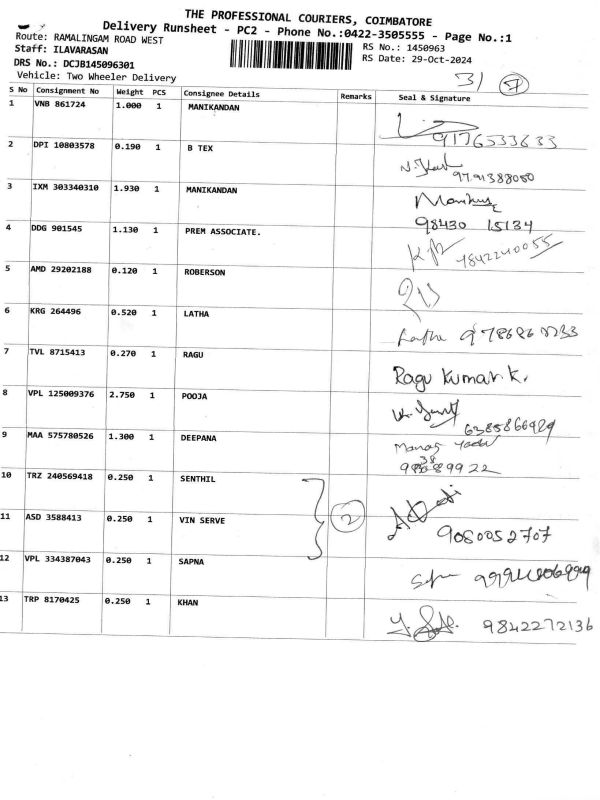 THE PROFESSIONAL COURIERS, COIMBATORE
Delivery Runsheet - PC2 - Phone No.:0422-3505555 - Page No.:1
Route: RAMALINGAM ROAD WEST
RS No.: 1450963
Staff: ILAVARASAN
RS Date: 29-Oct-2024
DRS No.: DCJB145096301
Vehicle: Two Wheeler Delivery
S No Consignment No Weight PCS Consignee Details Remarks Seal & Signature
1 VNB 861724 1.000 1 MANIKANDAN
9176533633
2 DPI 10803578 0.190 1 B TEX
9791388050
3 IXM 303340310 1.930 1 MANIKANDAN
98430 15134
4 DDG 901545 1.130 1 PREM ASSOCIATE.
9842240055
5 AMD 29202188 0.120 1 ROBERSON
6 KRG 264496 0.520 1 LATHA
Latha
7 TVL 8715413 0.270 1 RAGU
Ragu Kumar.K.
8 VPL 125009376 2.750 1 POOJA
9 MAA 575780526 1.300 1 DEEPANA
Manoj Yadav
10 TRZ 240569418 0.250 1 SENTHIL
2
11 ASD 3588413 0.250 1 VIN SERVE
9080052707
12 VPL 334387043 0.250 1 SAPNA
13 TRP 8170425 0.250 1 KHAN
9842272136